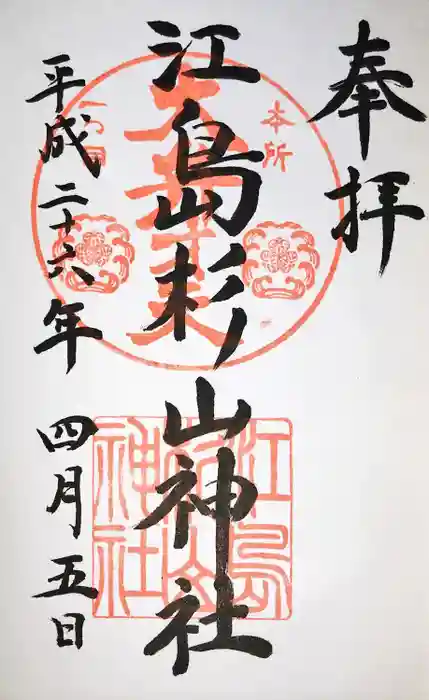 奉拝
本所
一つ目
江島杉山神社
江島杉山神社
平成二十六年 四月五日